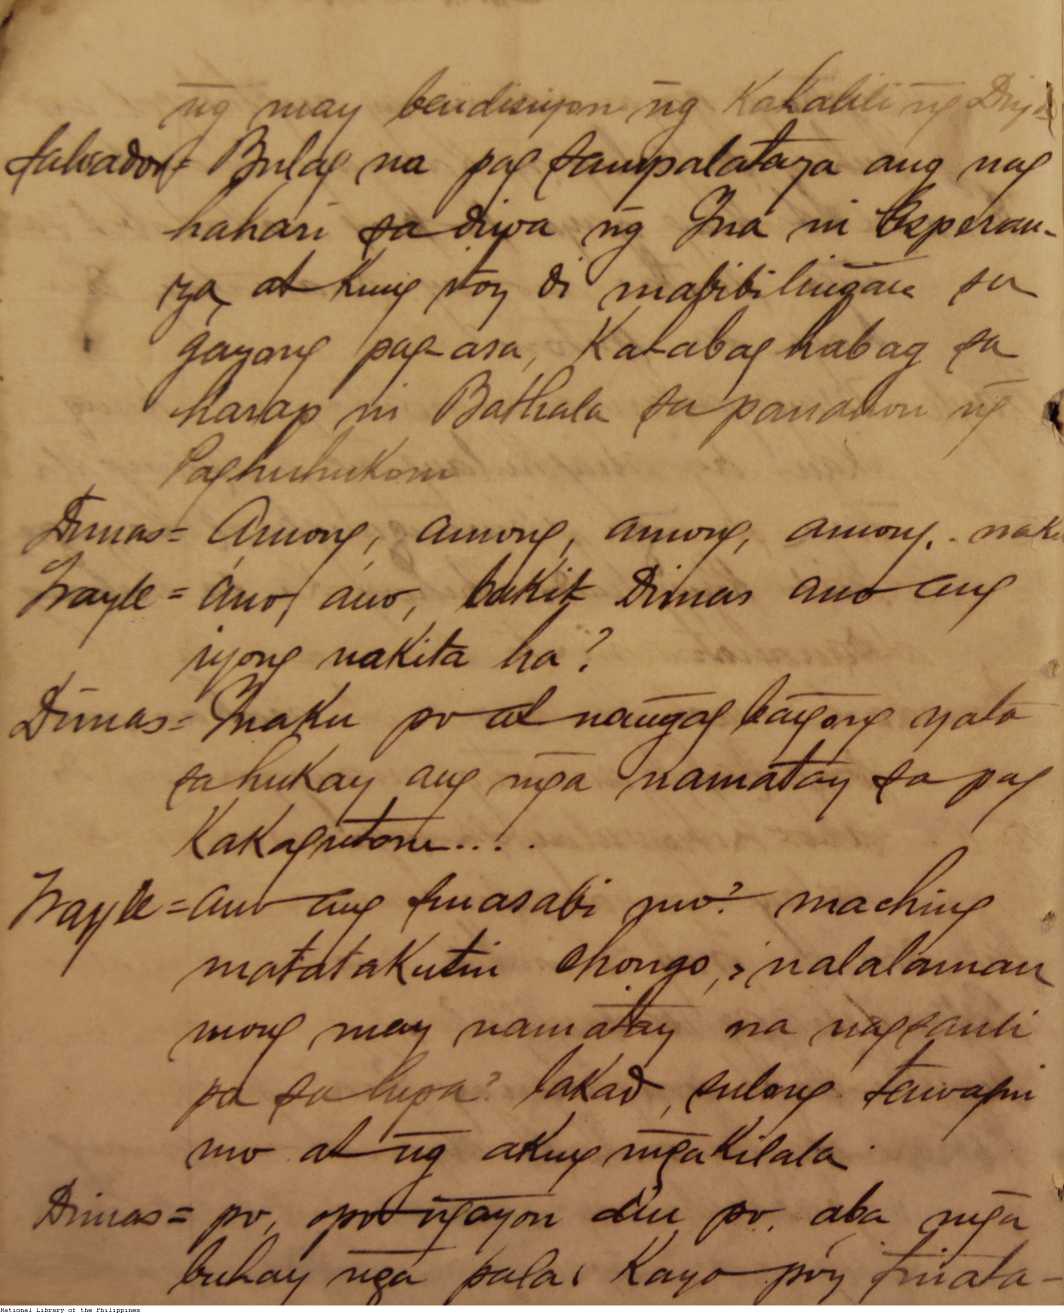 ng̃ may bendisiyon ng̃ Kakalili ng̃ Diyos
Salvador= Bulag na pag sampalataya ang nag
hahari sa diwa ng̃ Ina ni Esperan-
za, at kung itoy di mabibilingan sa
gayong pag-asa, Kahabag habag sa
harap ni Bathala sa panahon ng̃
Paghuhukom
Dimas= Among, among, among, among.. naku
Frayle= ano, ano, bakit Dimas ano ang
iyong nakita ha?
Dimas= Inaku po at nang̃ag bang̃ong yata
sa hukay ang mg̃a namatay sa pag
Kakagutom....
Frayle= ano ang sinasabi mo? maching
matatakutin chongo, ¿nalalaman
mong may namatay na nagsauli
pa sa lupa? lakad, sulong tawagin
mo at ng̃ aking mg̃akilala.
Dimas= po, opo ng̃ayon din po. aba mg̃a
buhay ng̃a pala; Kayo poy tinata-
National Library of the Philippines